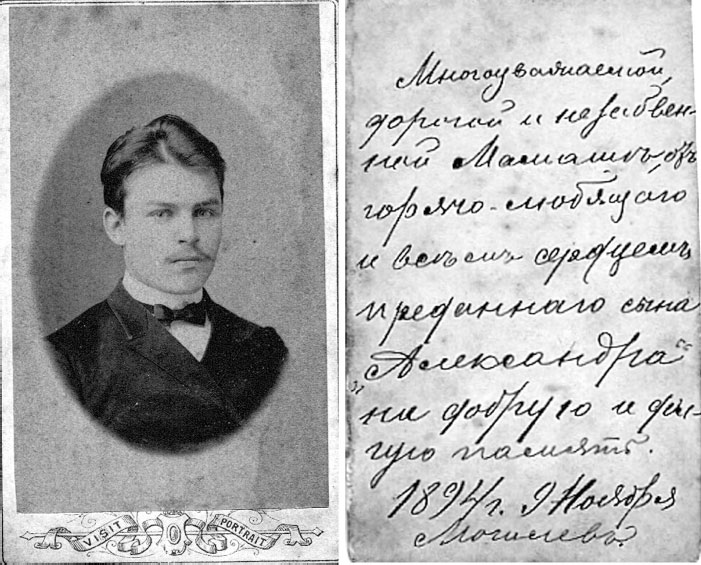 VISIT PORTRAIT
Многоуважаемой,
дорогой и незабвен-
ной Мамашѣ отъ
горячо-любящаго
и всѣмъ сердцемъ
преданнаго сына
„Александра“
на добрую и дол-
гую память.
1894 г. 9 Ноября
Могилевъ.